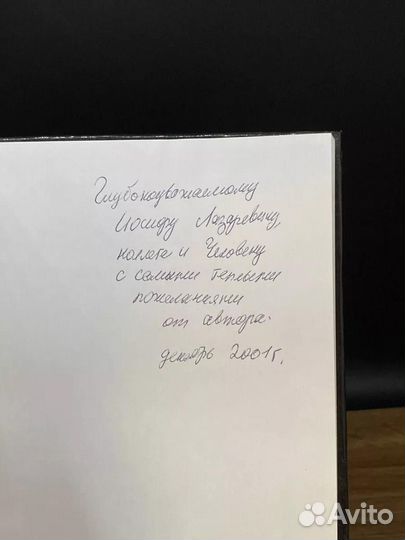 Глубокоуважаемому
Иосифу Лазаревичу,
коллеге и Человеку
с самыми теплыми
пожеланиями
от автора.
декабрь 2001г.
Avito